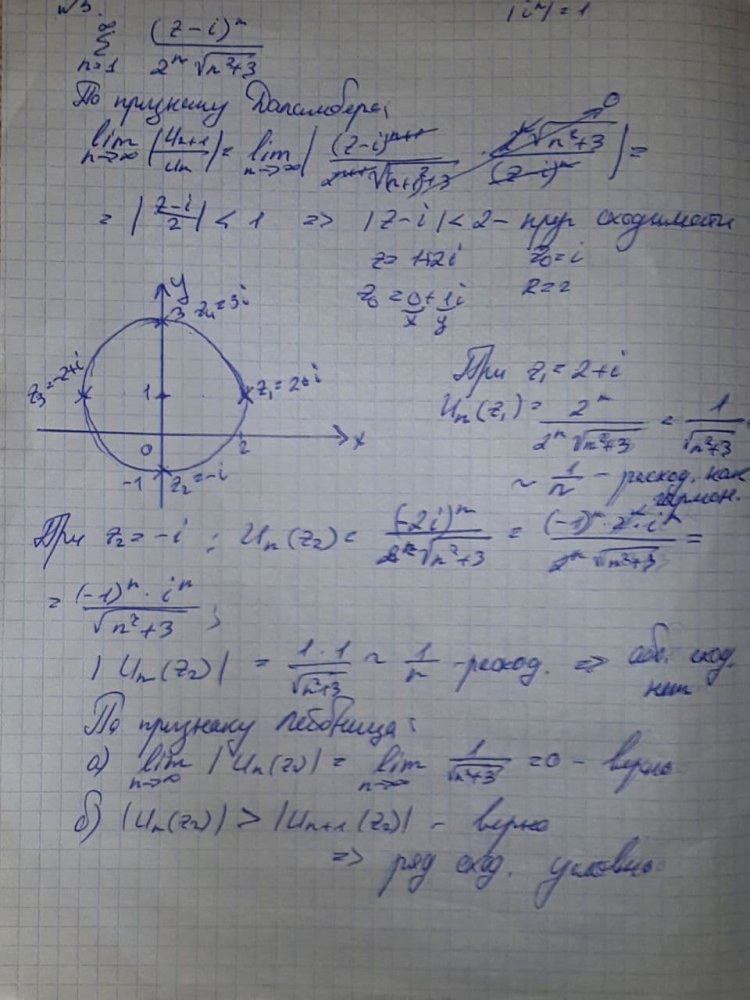 №3.
|iⁿ| = 1
∞ ∑ n=1 (z-i)ⁿ / 2ⁿ √n²+3
По признаку Даламбера:
lim n→∞ |Un+1 / Un| = lim n→∞ | (z-i)ⁿ⁺¹ / 2ⁿ⁺¹ √(n+1)²+3 · 2ⁿ √n²+3 / (z-i)ⁿ | =
= | z-i / 2 | < 1 => |z-i| < 2 - круг сходимости
z = 1+2i z₀ = i
z₀ = 0 + 1i R = 2
x y
y
3 z₄ = 3i
z₃ = -2+i 1 z₁ = 2+i
0 2 x
-1 z₂ = -i
При z₁ = 2+i
Un(z₁) = 2ⁿ / 2ⁿ √n²+3 = 1 / √n²+3 ~
~ 1/n - расход. как
гармон.
При z₂ = -i ; Un(z₂) = (-2i)ⁿ / 2ⁿ √n²+3 = (-1)ⁿ · 2ⁿ · iⁿ / 2ⁿ √n²+3 =
= (-1)ⁿ · iⁿ / √n²+3 ;
|Un(z₂)| = 1·1 / √n²+3 ~ 1/n - расход. => абс. сход.
нет
По признаку Лебница:
а) lim n→∞ |Un(z₂)| = lim n→∞ 1 / √n²+3 = 0 - верно
б) |Un(z₂)| > |Un+1(z₂)| - верно
=> ряд сход. условно